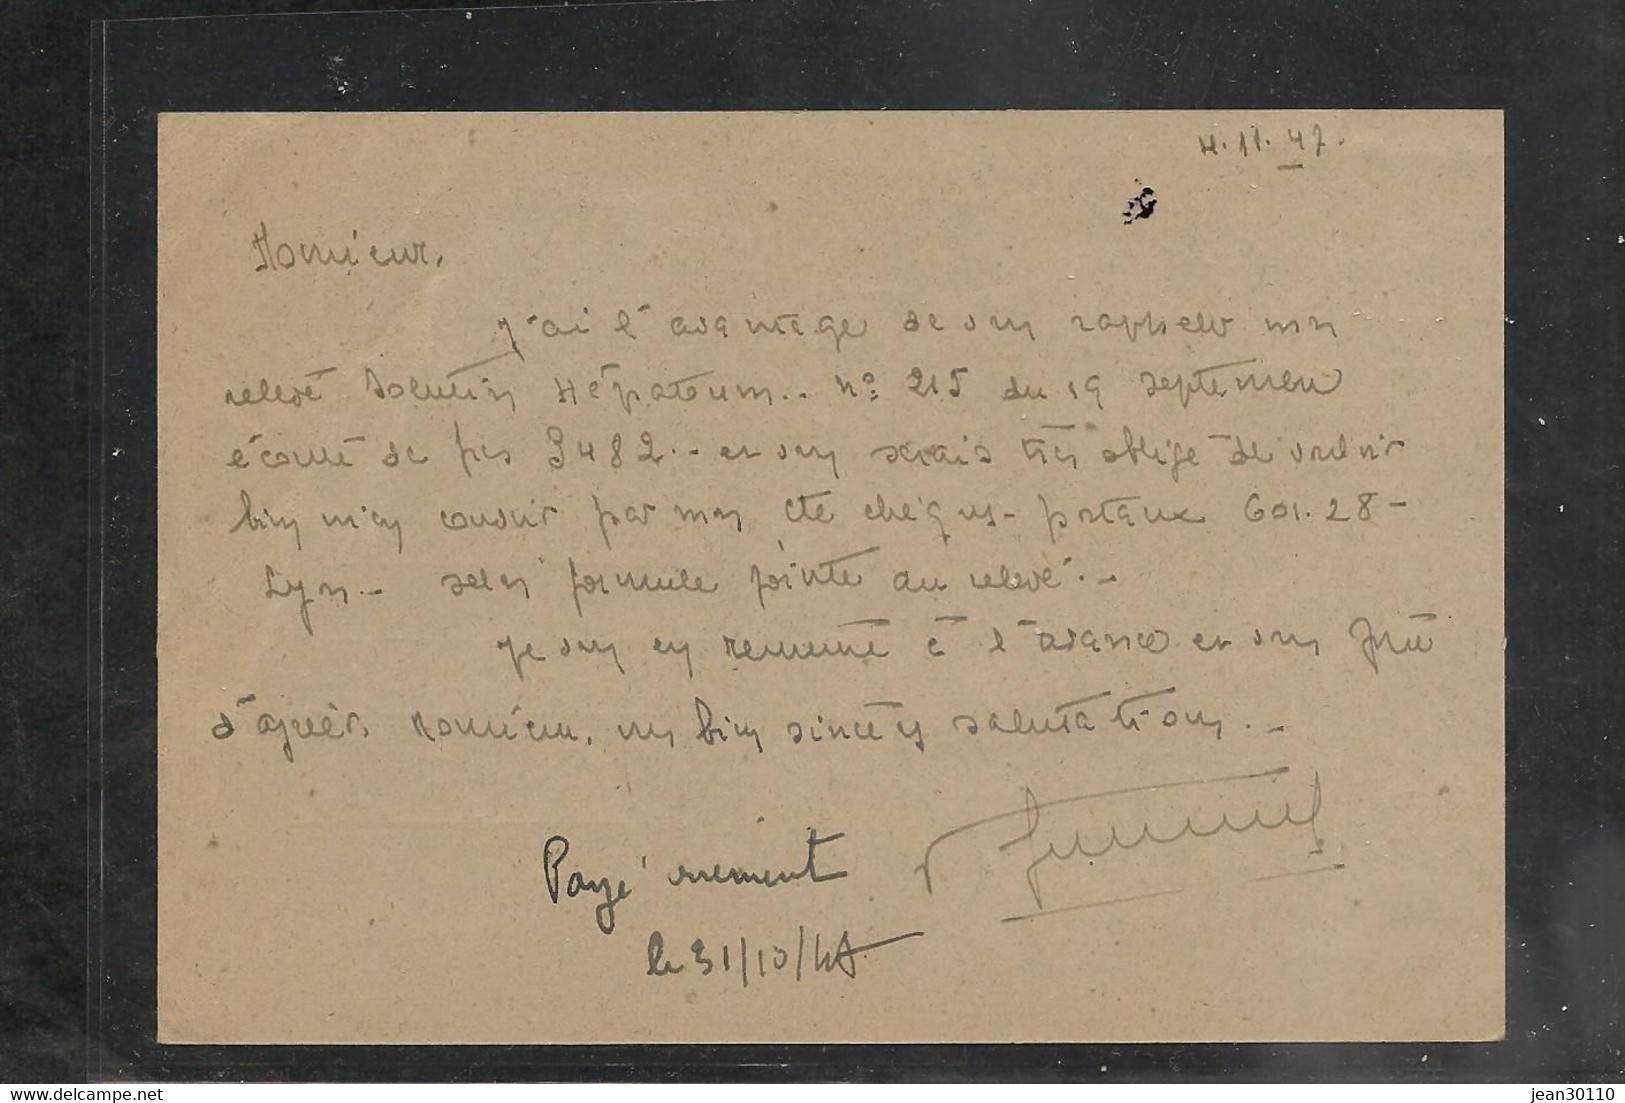 4.11.47.
Monsieur,
J'ai l'avantage de vous rappeler mon
relevé Solution Hépatoum.. n° 215 du 19 septembre
écoulé de frs 3482.- et vous serais très obligé de vouloir
bien m'en couvrir par mon cte chèques-postaux 601.28-
Lyon.- selon formule jointe au relevé.-
Je vous en remercie à l'avance et vous prie
d'agréer, Monsieur, mes bien sincères salutations.-
Payé virement
le 31/10/47
delcampe.net
jean30110